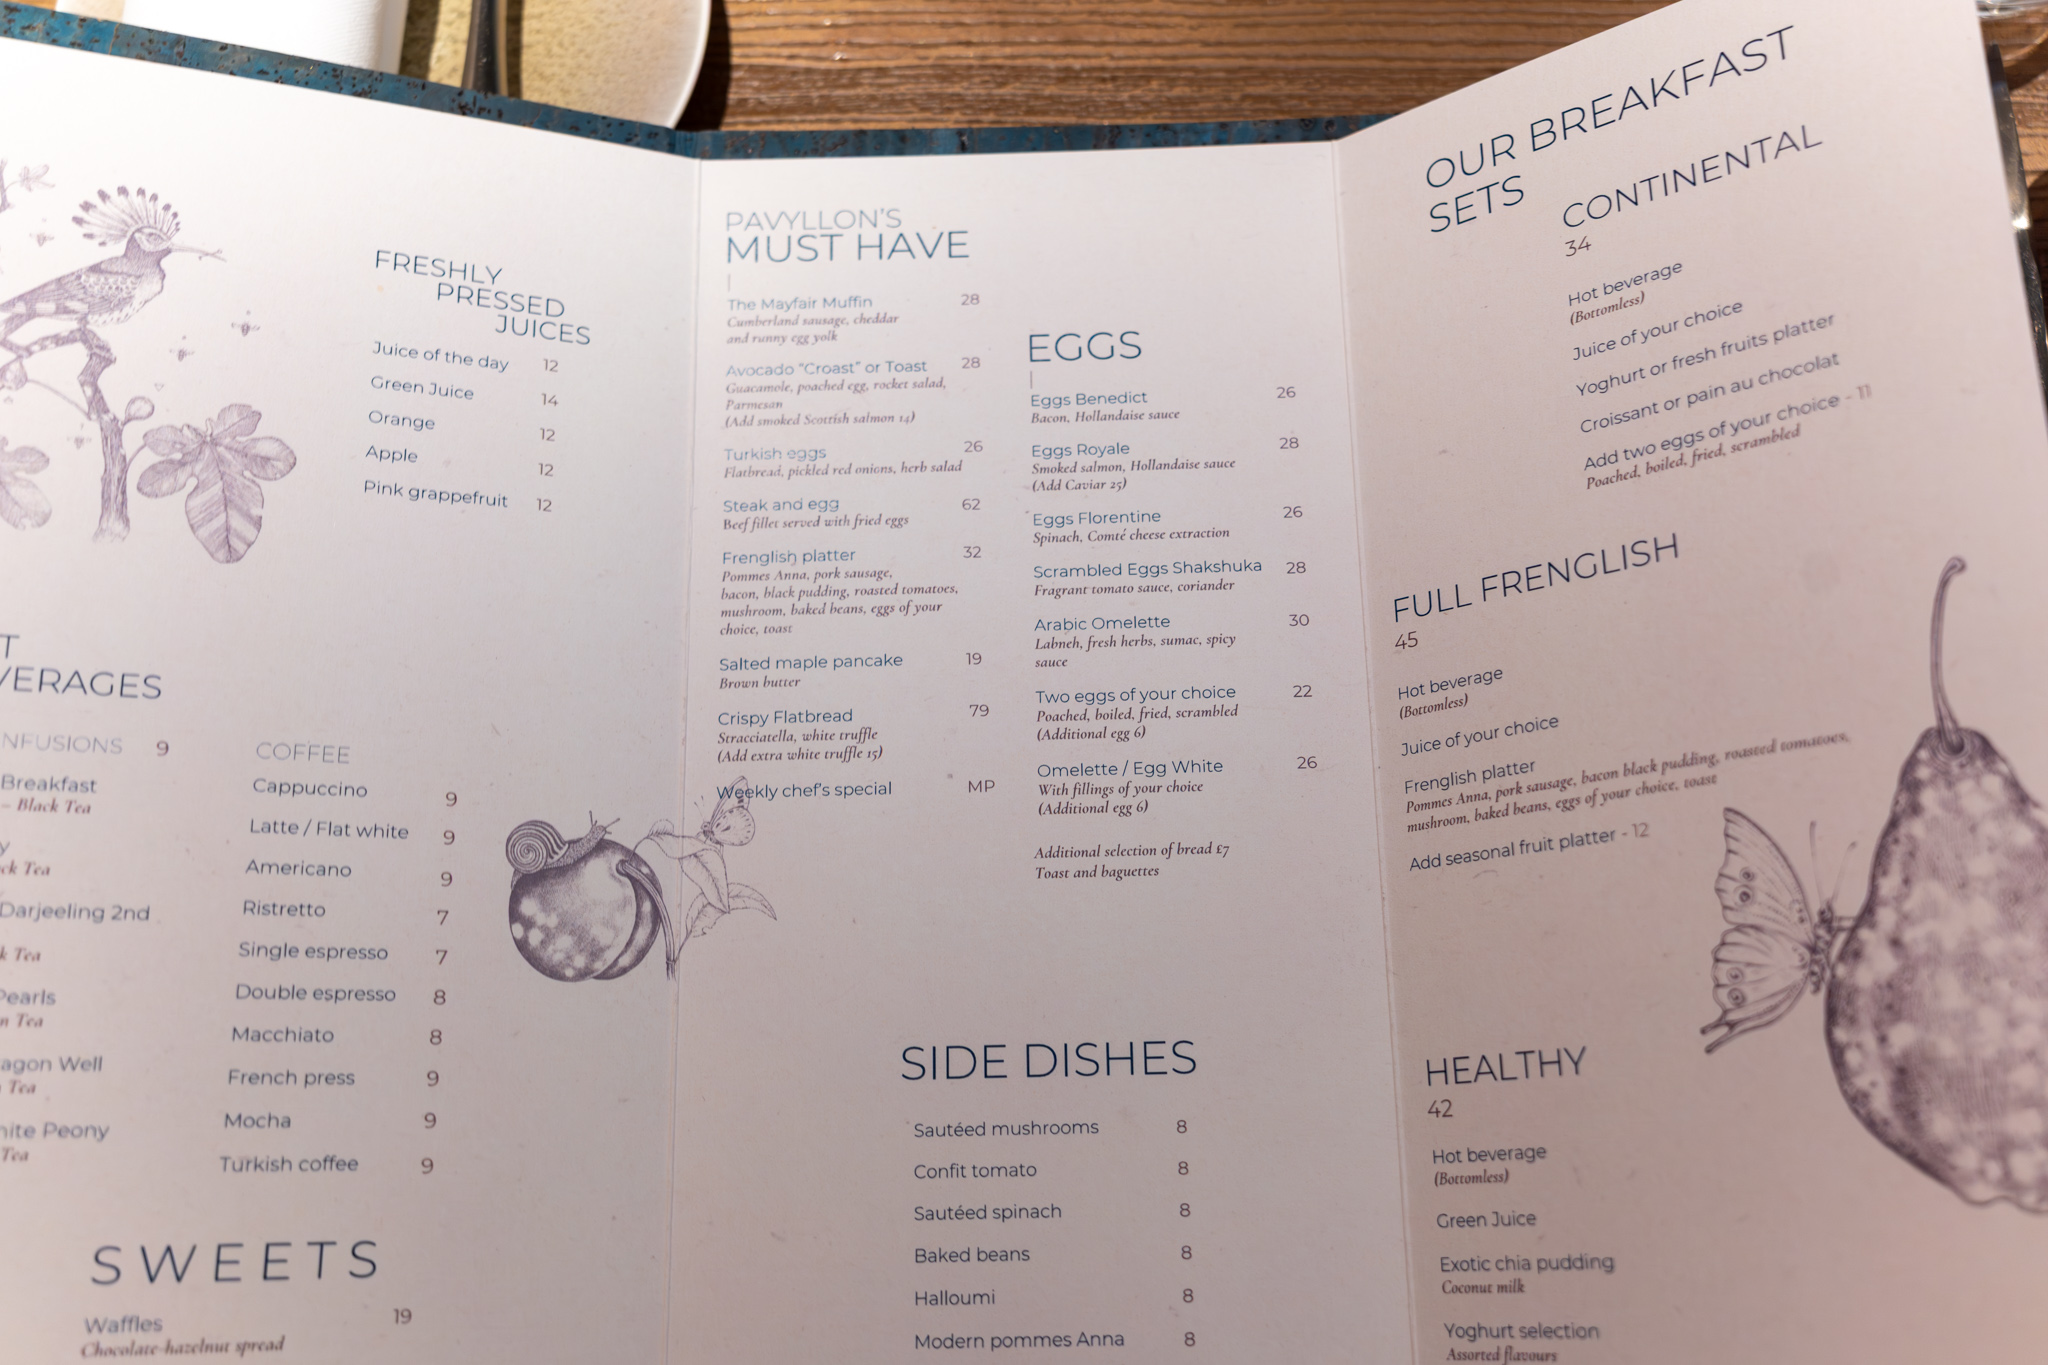 FRESHLY
PRESSED
JUICES
Juice of the day 12
Green Juice 14
Orange 12
Apple 12
Pink grappefruit 12
T
VERAGES
NFUSIONS 9
Breakfast
– Black Tea
y
ck Tea
Darjeeling 2nd
k Tea
Pearls
n Tea
agon Well
Tea
hite Peony
Tea
COFFEE
Cappuccino 9
Latte / Flat white 9
Americano 9
Ristretto 7
Single espresso 7
Double espresso 8
Macchiato 8
French press 9
Mocha 9
Turkish coffee 9
SWEETS
Waffles 19
Chocolate-hazelnut spread
PAVYLLON'S
MUST HAVE
The Mayfair Muffin 28
Cumberland sausage, cheddar
and runny egg yolk
Avocado "Croast" or Toast 28
Guacamole, poached egg, rocket salad,
Parmesan
(Add smoked Scottish salmon 14)
Turkish eggs 26
Flatbread, pickled red onions, herb salad
Steak and egg 62
Beef fillet served with fried eggs
Frenglish platter 32
Pommes Anna, pork sausage,
bacon, black pudding, roasted tomatoes,
mushroom, baked beans, eggs of your
choice, toast
Salted maple pancake 19
Brown butter
Crispy Flatbread 79
Stracciatella, white truffle
(Add extra white truffle 15)
Weekly chef's special MP
EGGS
Eggs Benedict 26
Bacon, Hollandaise sauce
Eggs Royale 28
Smoked salmon, Hollandaise sauce
(Add Caviar 25)
Eggs Florentine 26
Spinach, Comté cheese extraction
Scrambled Eggs Shakshuka 28
Fragrant tomato sauce, coriander
Arabic Omelette 30
Labneh, fresh herbs, sumac, spicy
sauce
Two eggs of your choice 22
Poached, boiled, fried, scrambled
(Additional egg 6)
Omelette / Egg White 26
With fillings of your choice
(Additional egg 6)
Additional selection of bread £7
Toast and baguettes
SIDE DISHES
Sautéed mushrooms 8
Confit tomato 8
Sautéed spinach 8
Baked beans 8
Halloumi 8
Modern pommes Anna 8
OUR BREAKFAST
SETS
CONTINENTAL
34
Hot beverage
(Bottomless)
Juice of your choice
Yoghurt or fresh fruits platter
Croissant or pain au chocolat
Add two eggs of your choice - 11
Poached, boiled, fried, scrambled
FULL FRENGLISH
45
Hot beverage
(Bottomless)
Juice of your choice
Frenglish platter
Pommes Anna, pork sausage, bacon black pudding, roasted tomatoes,
mushroom, baked beans, eggs of your choice, toast
Add seasonal fruit platter - 12
HEALTHY
42
Hot beverage
(Bottomless)
Green Juice
Exotic chia pudding
Coconut milk
Yoghurt selection
Assorted flavours